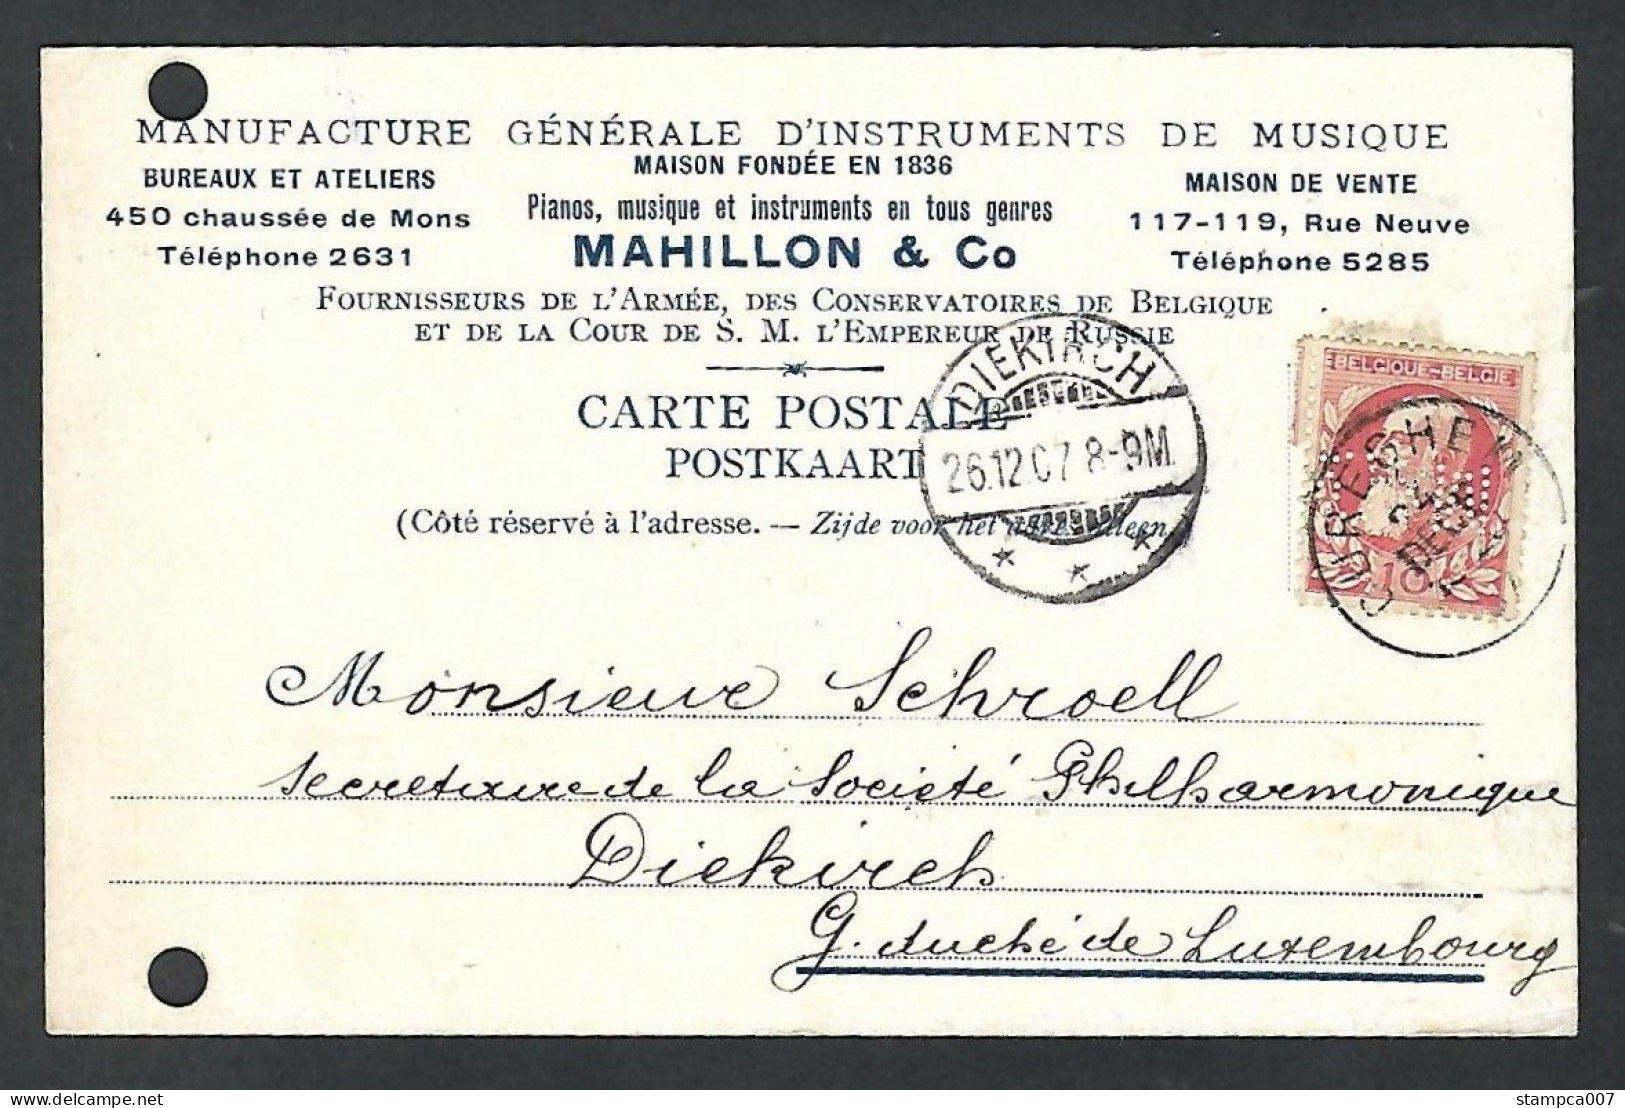 MANUFACTURE GÉNÉRALE D'INSTRUMENTS DE MUSIQUE
MAISON FONDÉE EN 1836
BUREAUX ET ATELIERS
450 chaussée de Mons
Téléphone 2631
Pianos, musique et instruments en tous genres
MAHILLON & Co
MAISON DE VENTE
117-119, Rue Neuve
Téléphone 5285
FOURNISSEURS DE L'ARMÉE, DES CONSERVATOIRES DE BELGIQUE
ET DE LA COUR DE S. M. L'EMPEREUR DE RUSSIE
CARTE POSTALE
POSTKAART
(Côté réservé à l'adresse. — Zijde voor het adres alleen.)
DIEKIRCH
26.12.07 8-9M
BELGIQUE-BELGIE
10
CUREGHEM
DEC
Monsieur Schroell
secrétaire de la Société Philharmonique
Diekirch
G. duché de Luxembourg
stampca007